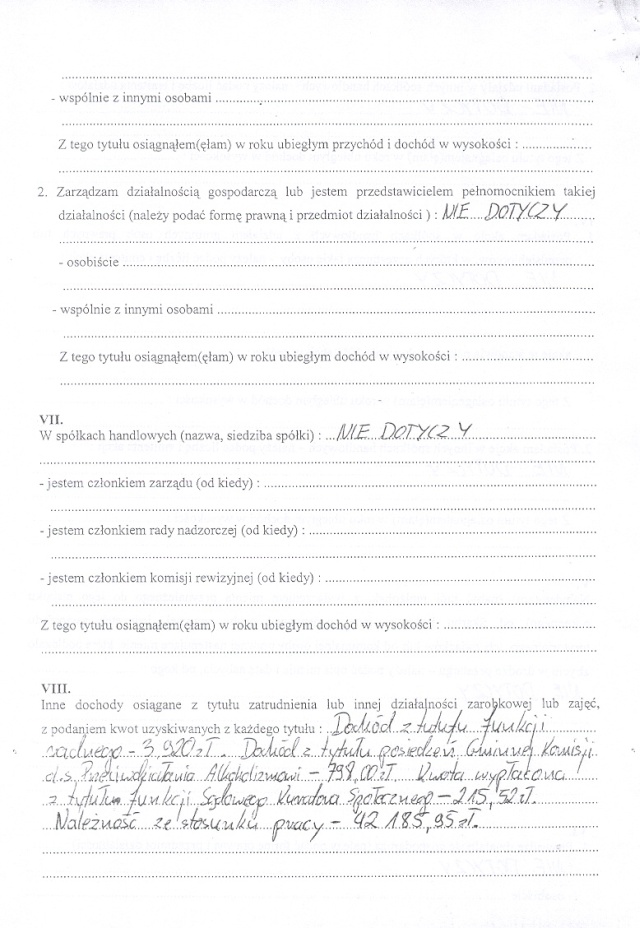 - wspólnie z innymi osobami
Z tego tytułu osiągnąłem(ęłam) w roku ubiegłym przychód i dochód w wysokości :
2. Zarządzam działalnością gospodarczą lub jestem przedstawicielem pełnomocnikiem takiej
działalności (należy podać formę prawną i przedmiot działalności ) : NIE DOTYCZY
- osobiście
- wspólnie z innymi osobami
Z tego tytułu osiągnąłem(ęłam) w roku ubiegłym dochód w wysokości :
VII.
W spółkach handlowych (nazwa, siedziba spółki) : NIE DOTYCZY
- jestem członkiem zarządu (od kiedy) :
- jestem członkiem rady nadzorczej (od kiedy) :
- jestem członkiem komisji rewizyjnej (od kiedy) :
Z tego tytułu osiągnąłem(ęłam) w roku ubiegłym dochód w wysokości :
VIII.
Inne dochody osiągane z tytułu zatrudnienia lub innej działalności zarobkowej lub zajęć,
z podaniem kwot uzyskiwanych z każdego tytułu : Dochód z tytułu funkcji
radnego - 3,920 zł. Dochód z tytułu posiedzeń Gminnej Komisji
d.s. Przeciwdziałania Alkoholizmowi - 798,00 zł. Kwota wypłacona
z tytułu funkcji Sądowego Kuratora Społecznego - 215,52 zł.
Należność ze stosunku pracy - 42 185,95 zł.